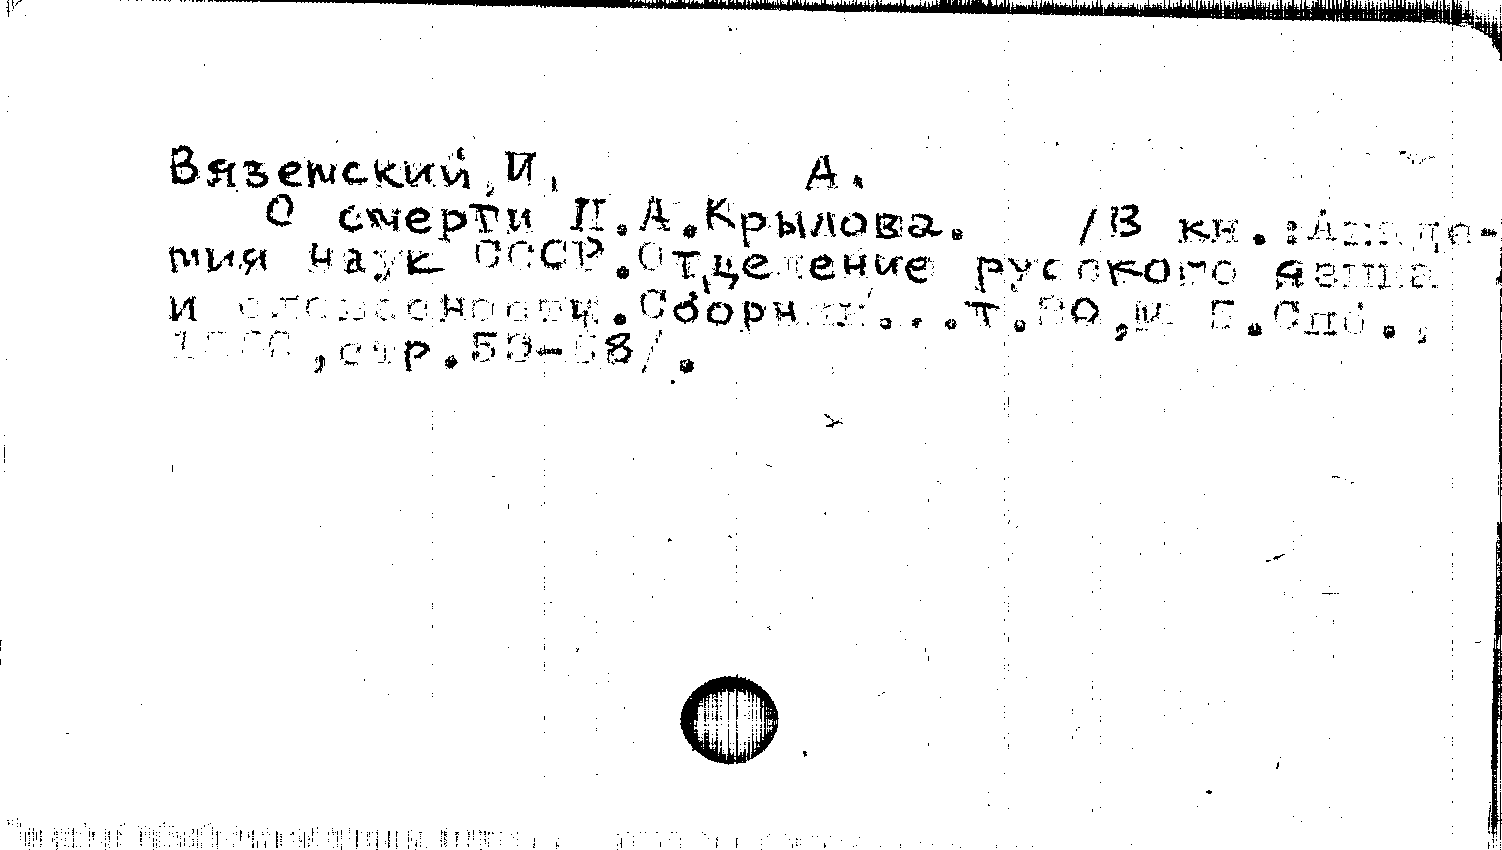 Вяземский, И. А.
О смерти И.А.Крылова. /В кн.:Акаде-
мия наук СССР.Отделение русского языка
и словесности.Сборник...т.80,№ 5.Спб.,
стр.59-68/.